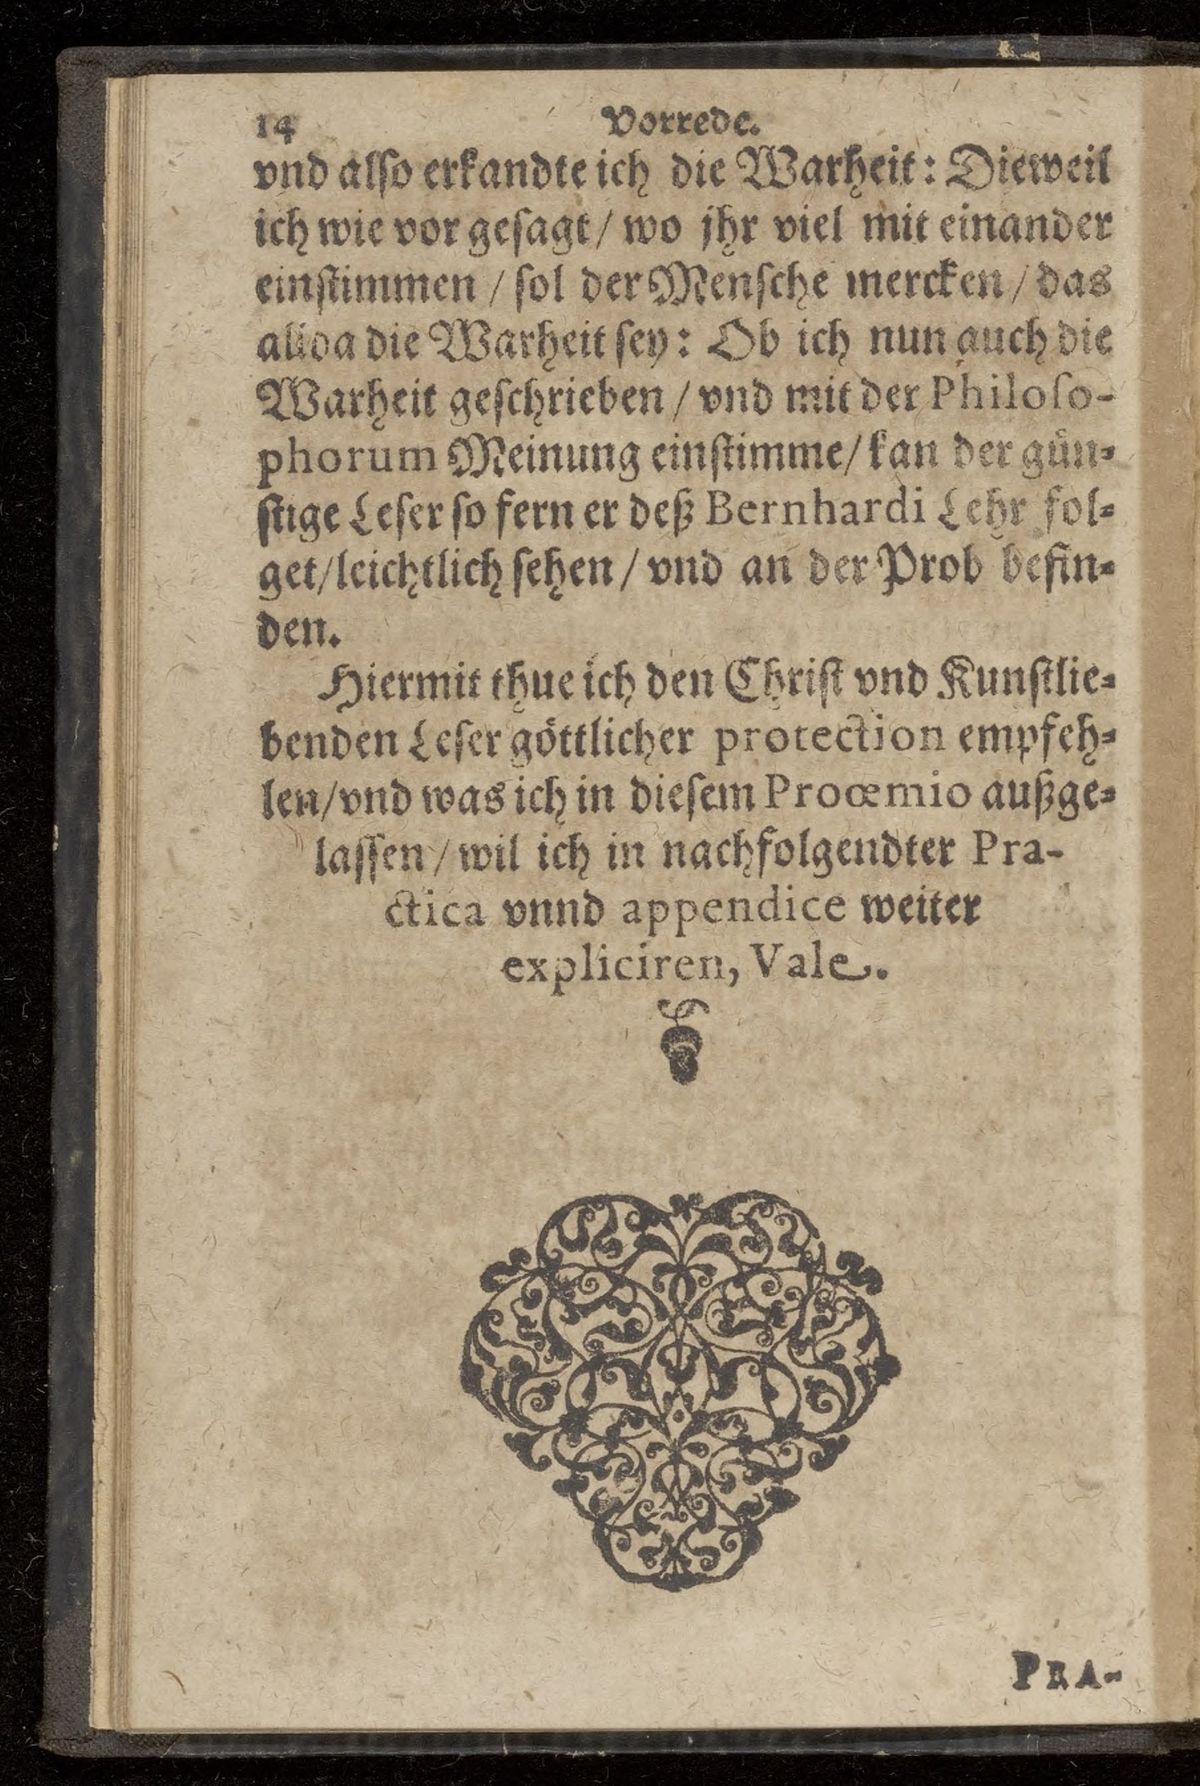 14 Vorrede.
vnd also erkandte ich die Warheit: Dieweil
ich wie vor gesagt/ wo jhr viel mit einander
einstimmen / sol der Mensche mercken / das
alida die Warheit sey: Ob ich nun auch die
Warheit geschrieben / vnd mit der Philoso-
phorum Meinung einstimme/ kan der gün-
stige Leser so fern er deß Bernhardi Lehr fol-
get/leichtlich sehen / vnd an der Prob befin-
den.
Hiermit thue ich den Christ vnd Kunstlie-
benden Leser göttlicher protection empfeh-
len/vnd was ich in diesem Proœmio außge-
lassen / wil ich in nachfolgendter Pra-
ctica vnnd appendice weiter
expliciren, Vale.
PRA-